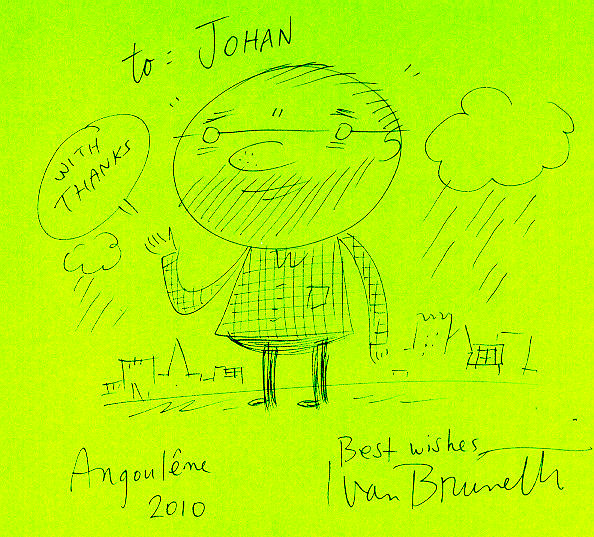 to: JOHAN
WITH
THANKS
Angoulême
2010
Best wishes,
Ivan Brunetti